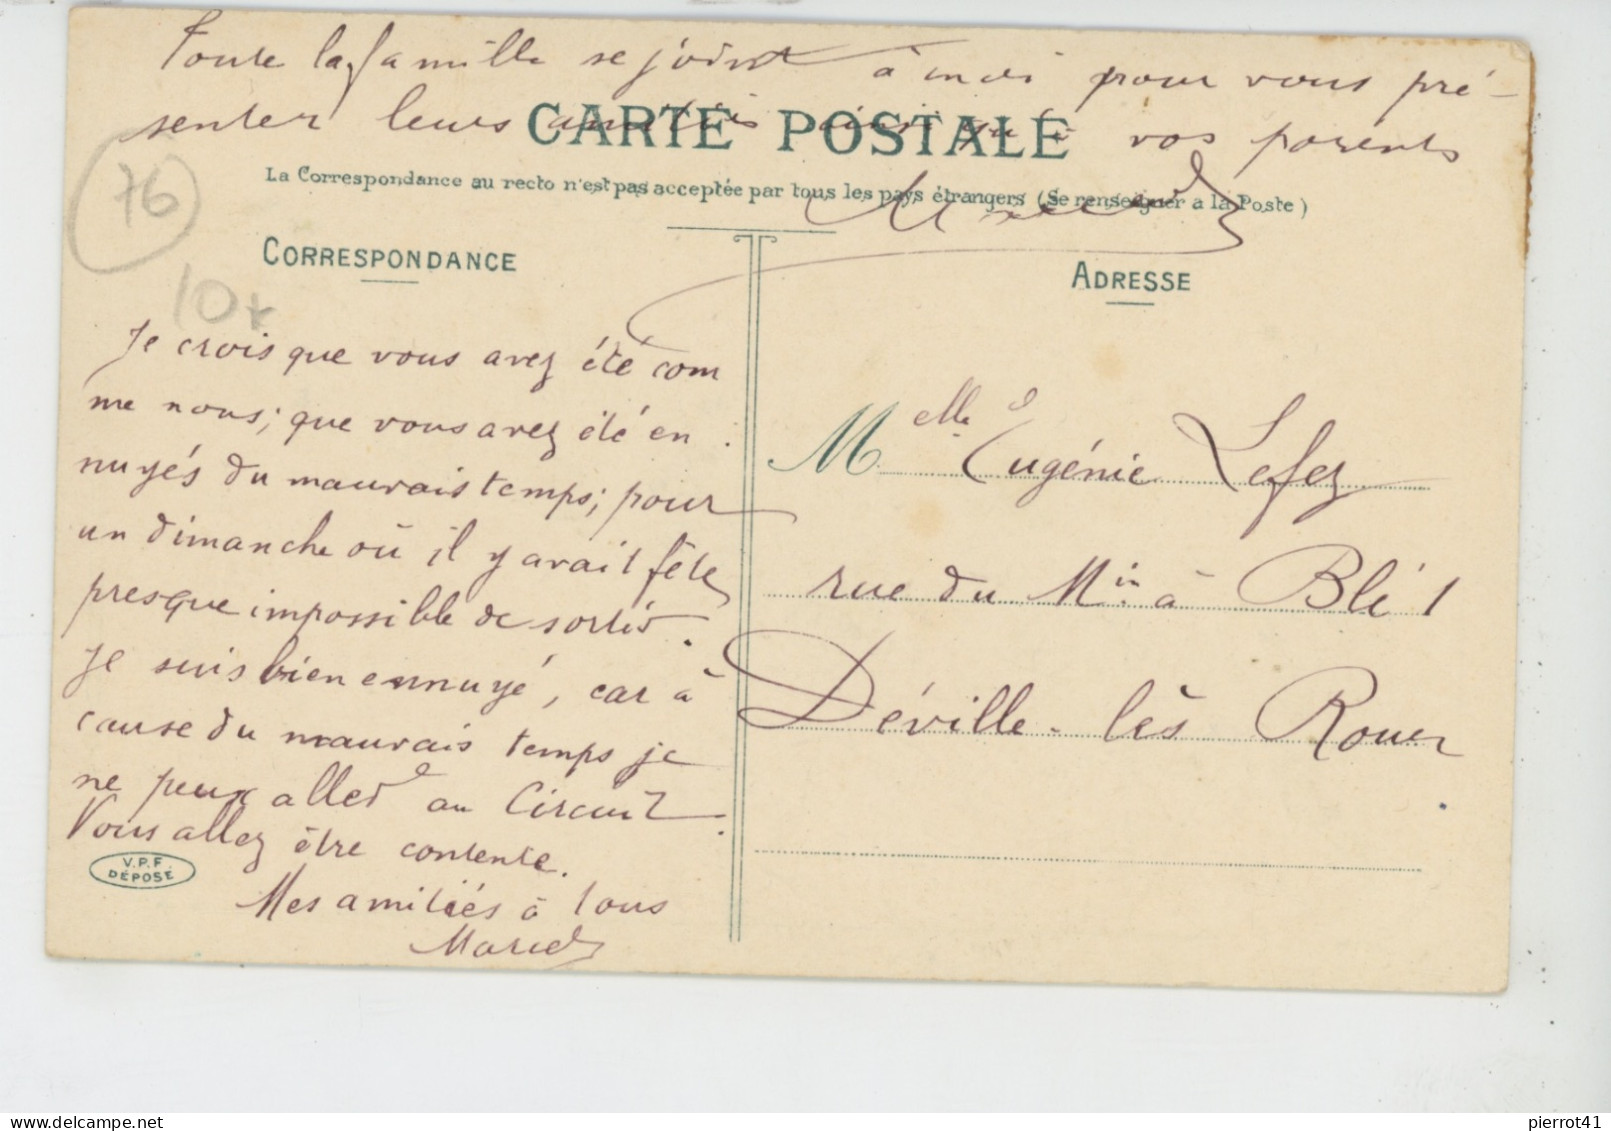 Toute la famille se joint à moi pour vous pré-
senter leurs amitiés ainsi qu'à vos parents
CARTE POSTALE
La Correspondance au recto n'est pas acceptée par tous les pays étrangers (Se renseigner a la Poste)
76
CORRESPONDANCE
ADRESSE
10
Je crois que vous avez été com
me nous; que vous avez été en
nuyés du mauvais temps; pour
un dimanche où il y avait fête
presque impossible de sortir.
Je suis bien ennuyé, car à
cause du mauvais temps je
ne peux aller au Circuit.
Vous allez être contente.
Mes amitiés à tous
Marcel
Melle Eugénie Lefez
rue du Min à Blé 1
Déville-lès Rouen
V.P.F.
DÉPOSÉ
www.delcampe.net
pierrot41